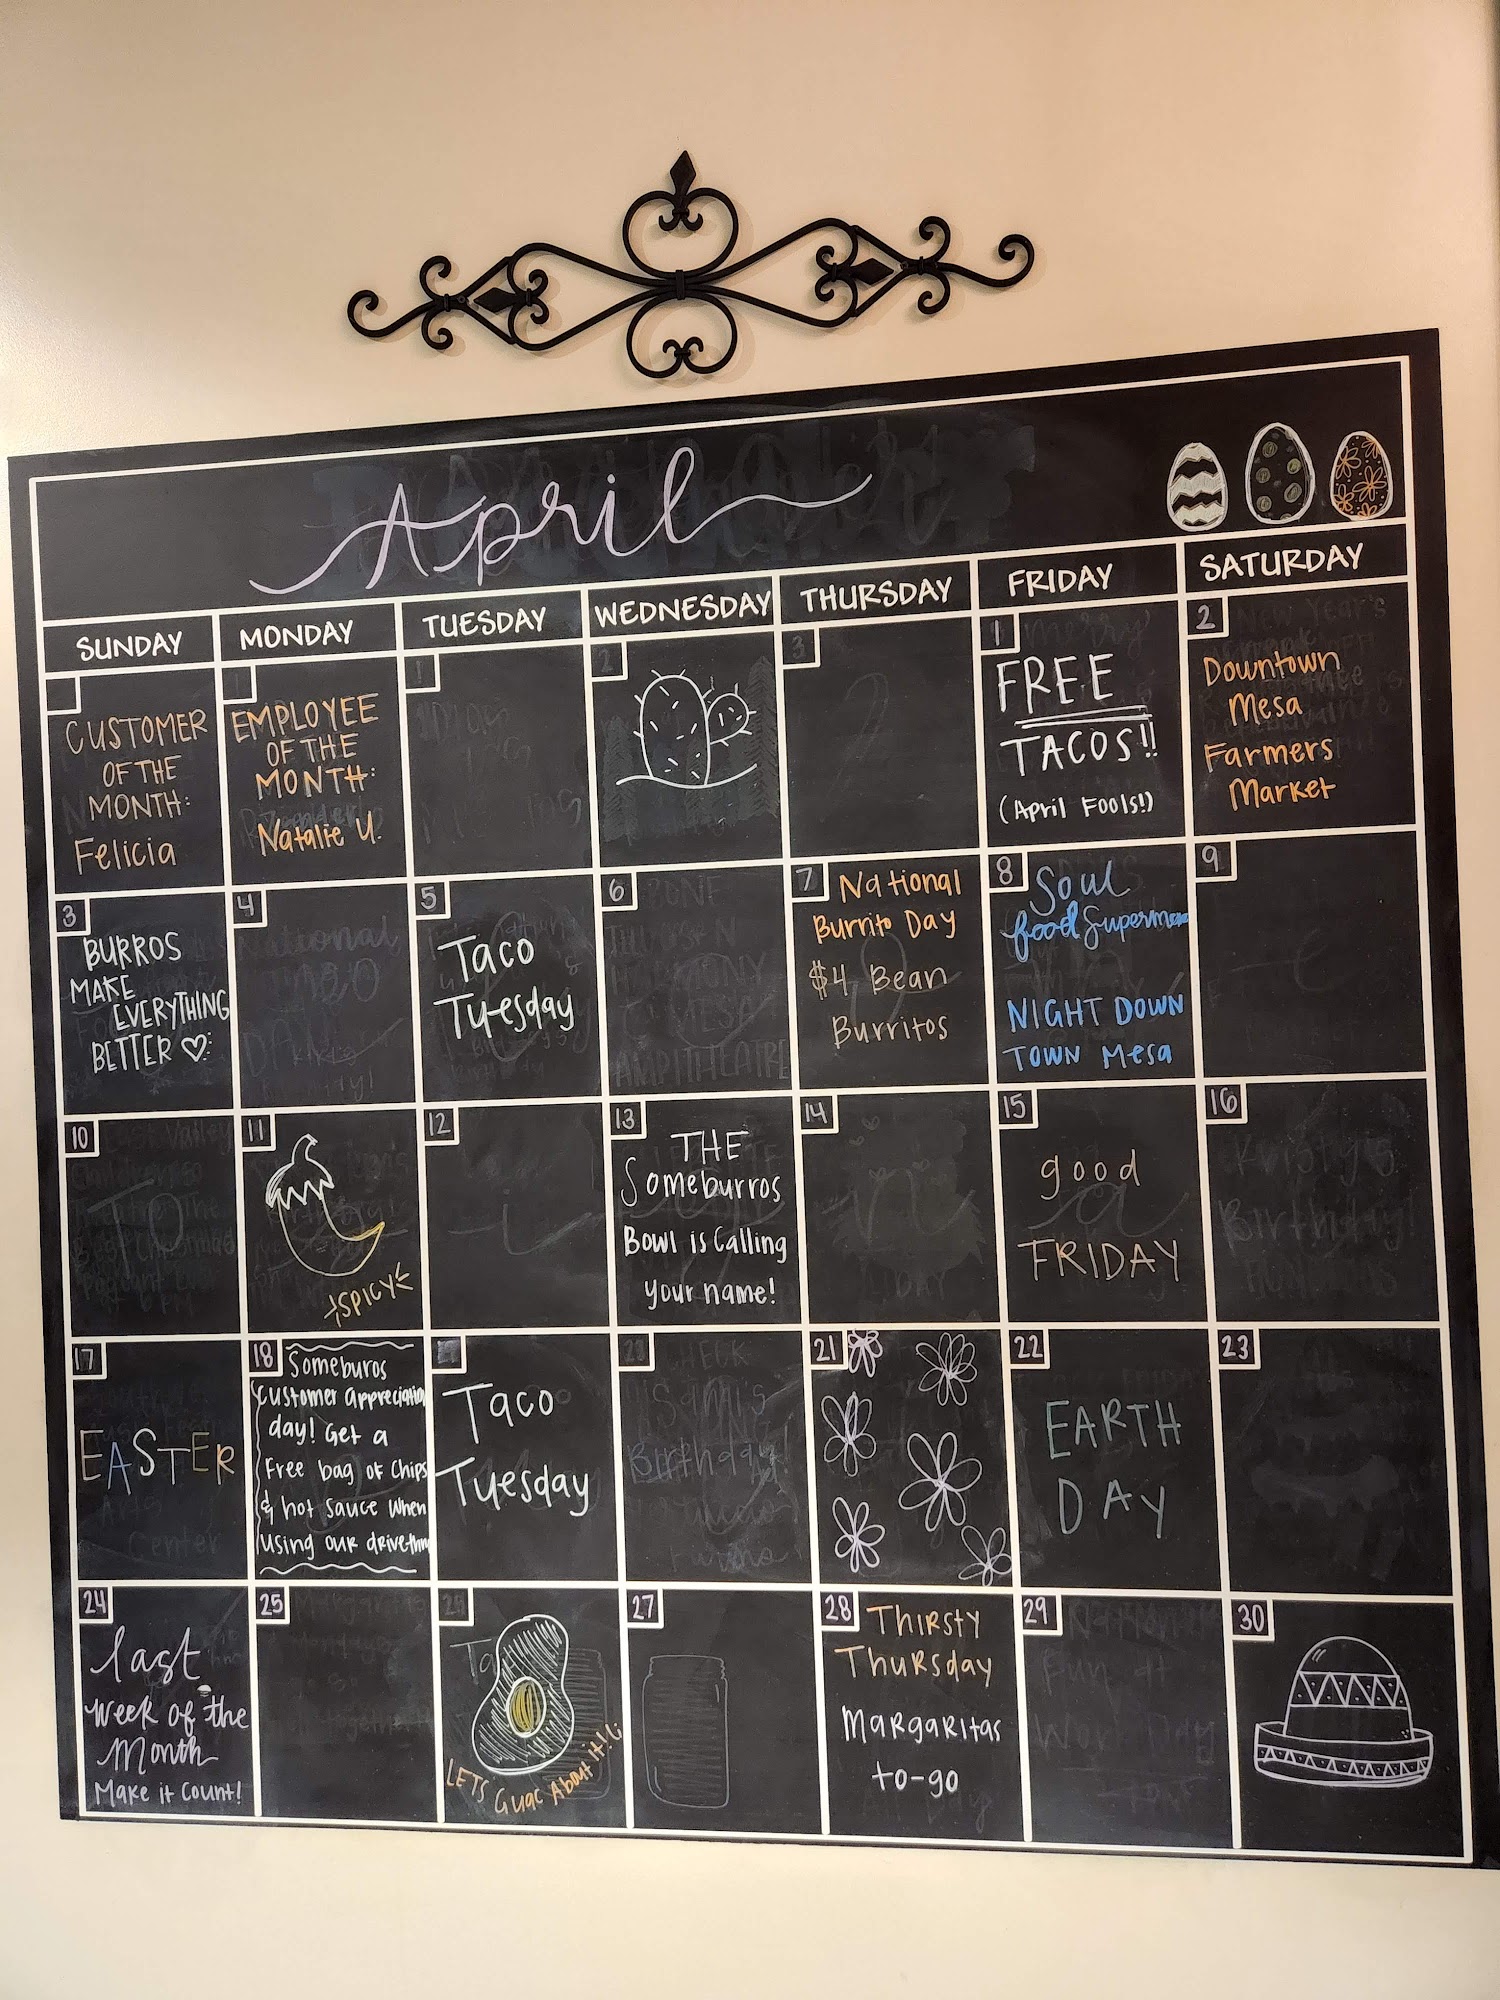 April
SUNDAY
MONDAY
TUESDAY
WEDNESDAY
THURSDAY
FRIDAY
SATURDAY
CUSTOMER
OF THE
MONTH:
Felicia
EMPLOYEE
OF THE
MONTH:
Natalie U.
1
2
3
1
FREE
TACOS!!
(April FOOLS!)
2
Downtown
Mesa
Farmers
Market
3
BURROS
MAKE
EVERYTHING
BETTER
4
5
Taco
Tuesday
6
7
National
Burrito Day
$4 Bean
Burritos
8
Soul
food
NIGHT DOWN
TOWN Mesa
9
10
11
SPICY
12
13
THE
Someburros
Bowl is Calling
your name!
14
15
good
FRIDAY
16
Kristy's
Birthday!
17
EASTER
18
Someburos
Customer Appreciation
day! Get a
Free bag of Chips
& hot sauce when
using our drive-thru
Taco
Tuesday
21
22
EARTH
DAY
23
24
last
week of the
Month
Make it Count!
25
LETS Guac About it!
27
28
THIRSTY
Thursday
Margaritas
to-go
29
30